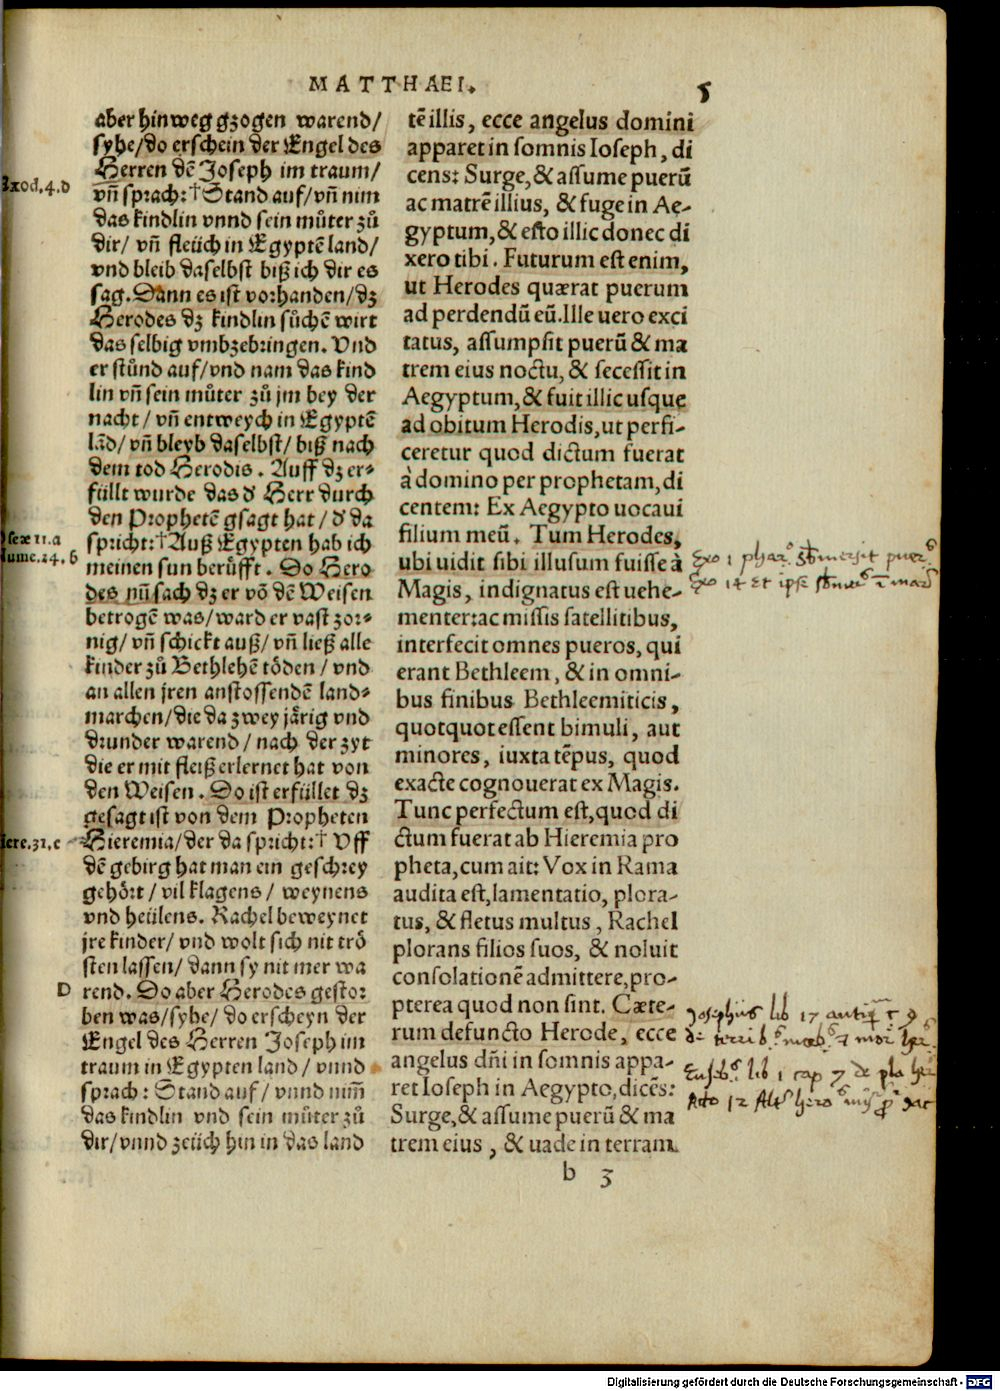 MATTHAEI.
5
aber hinweg gzogen warend/
syhe/do erschein der Engel des
Herren dē Joseph im traum/
Exod.4.d
vñ sprach:†Stand auf/vñ nim
das kindlin vnnd sein můter zů
dir/ vñ fleüch in Egyptē land/
vnd bleib daselbst biß ich dir es
sag. Dann es ist vorhanden/dz
Herodes dz kindlin sůchē wirt
das selbig vmbzebringen. Vnd
er stůnd auf/vnd nam das kind
lin vñ sein můter zů jm bey der
nacht/ vñ entweych in Egyptē
lād/ vñ bleyb daselbst/ biß nach
dem tod Herodis. Auff dz er-
füllt wurde das d' Herr durch
den Prophetē gsagt hat/ d' da
Oseæ 11.a
spricht:†Auß Egypten hab ich
Nume.24.b
meinen sun berůfft. Do Hero
des nun sach dz er vō dē Weisen
betrogē was/ward er vast zor-
nig/ vñ schickt auß/ vñ ließ alle
kinder zů Bethlehē töden / vnd
an allen jren anstossendē land-
marchen/die da zwey järig vnd
drunder warend / nach der zyt
die er mit fleiß erlernet hat von
den Weisen. Do ist erfüllet dz
gesagt ist von dem Propheten
Iere.31.c
Hieremia/der da spricht:† Vff
dē gebirg hat man ein geschrey
gehört / vil klagens / weynens
vnd heülens. Rachel beweynet
jre kinder/ vnd wolt sich nit trö
sten lassen/ dann sy nit mer wa
D
rend. Do aber Herodes gestor
ben was/syhe/ do erscheyn der
Engel des Herren Joseph im
traum in Egypten land / vnnd
sprach: Stand auf / vnnd nim̄
das kindlin vnd sein můter zů
dir/vnnd zeüch hin in das land
tē illis, ecce angelus domini
apparet in somnis Ioseph, di
cens: Surge, & assume puerū
ac matrē illius, & fuge in Ae-
gyptum, & esto illic donec di
xero tibi. Futurum est enim,
ut Herodes quærat puerum
ad perdendū eū. Ille uero exci
tatus, assumpsit puerū & ma
trem eius noctu, & secessit in
Aegyptum, & fuit illic usque
ad obitum Herodis, ut perfi-
ceretur quod dictum fuerat
à domino per prophetam, di
centem: Ex Aegypto uocaui
filium meū. Tum Herodes,
ubi uidit sibi illusum fuisse à
Magis, indignatus est uehe-
menter: ac missis satellitibus,
interfecit omnes pueros, qui
erant Bethleem, & in omni-
bus finibus Bethleemiticis,
quotquot essent bimuli, aut
minores, iuxta tēpus, quod
exacte cognouerat ex Magis.
Tunc perfectum est, quod di
ctum fuerat ab Hieremia pro
pheta, cum ait: Vox in Rama
audita est, lamentatio, plora-
tus, & fletus multus, Rachel
plorans filios suos, & noluit
consolationē admittere, pro-
pterea quod non sint. Cæte-
rum defuncto Herode, ecce
angelus dñi in somnis appa-
ret Ioseph in Aegypto, dicēs:
Surge, & assume puerū & ma
trem eius, & uade in terram
b 3
Exo 1
Exo 14 Et
Josephus lib 17
lib 1 cap 7 de
12
Digitalisierung gefördert durch die Deutsche Forschungsgemeinschaft - DFG